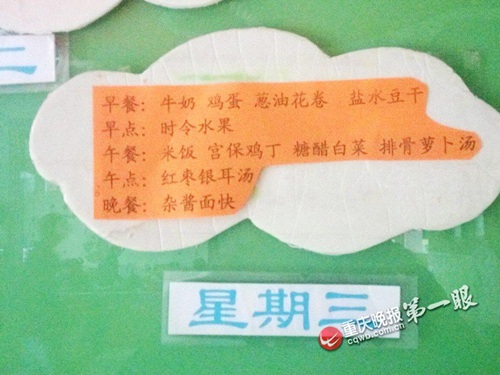 二
早餐：牛奶 鸡蛋 葱油花卷 盐水豆干
早点：时令水果
午餐：米饭 宫保鸡丁 糖醋白菜 排骨萝卜汤
午点：红枣银耳汤
晚餐：杂酱面快
星期三
重庆晚报 第一眼
cqwb.com.cn